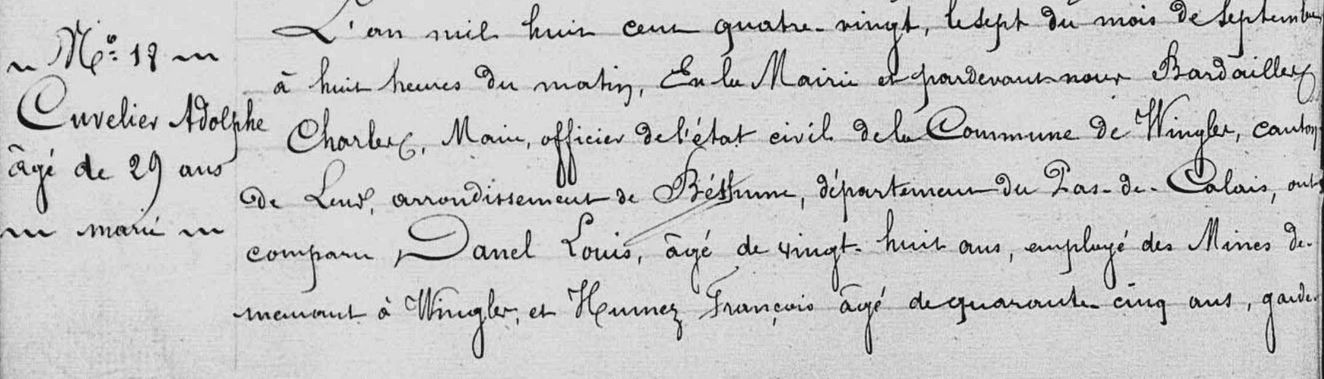 N° 18
Cuvelier Adolphe
âgé de 29 ans
marié
L'an mil huit cent quatre-vingt, le sept du mois de Septembre
à huit heures du matin, En la Mairie et pardevant nous Bardailles
Charles, Maire, officier de l'état civil de la Commune de Wingles, canton
de Lens, arrondissement de Béthune, département du Pas-de-Calais, ont
comparu Danel Louis, âgé de vingt-huit ans, employé des Mines de-
meurant à Wingles, et Humez François âgé de quarante cinq ans, garde-